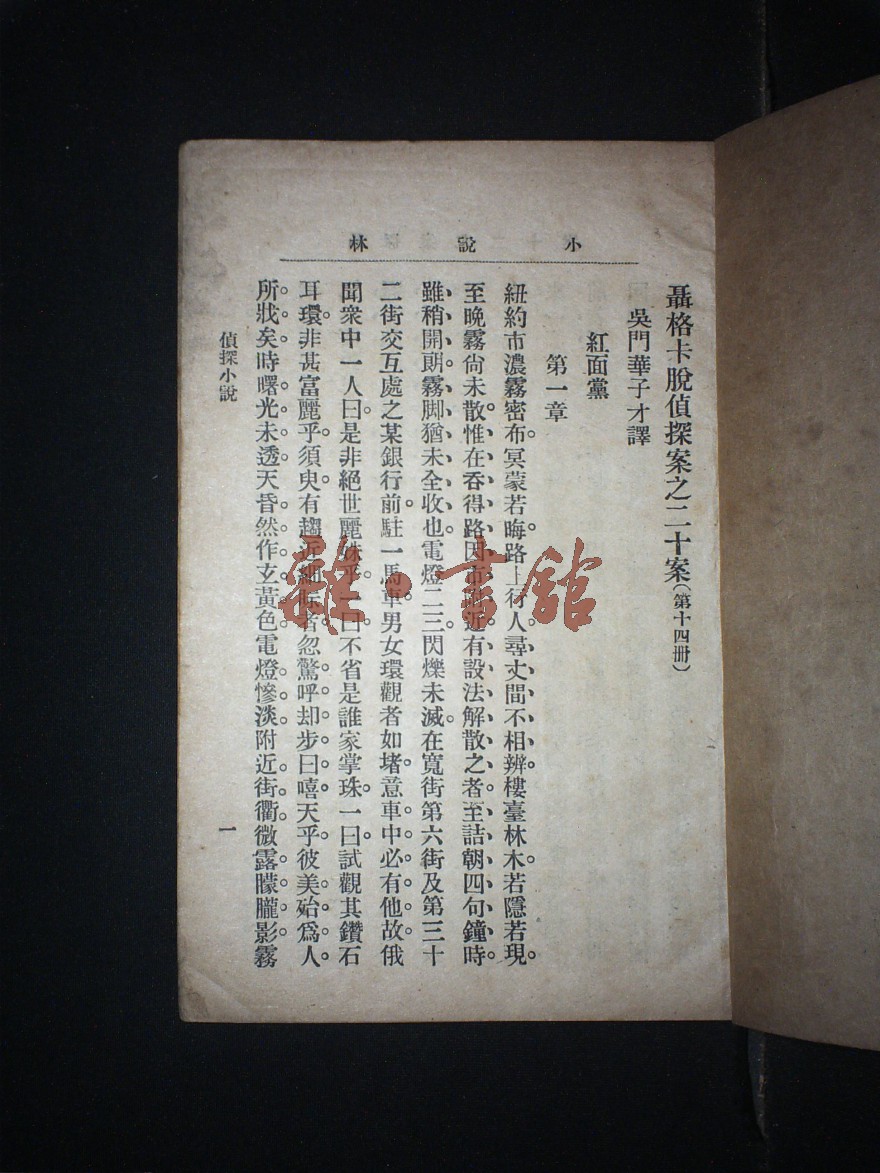 小說林
聶格卡脫偵探案之二十案（第十四冊）
吳門華子才譯
紅面黨
第一章
紐約市濃霧密布。冥蒙若晦。路上行人。尋丈間不相辨。樓臺林木。若隱若現。
至晚霧尙未散。惟在呑得路因市政近有設法解散之者。至詰朝四句鐘時。
雖稍開朗。霧脚猶未全收也。電燈二三。閃爍未滅。在寬街第六街及第三十
二街交互處之某銀行前。駐一馬車。男女環觀者如堵。意車中必有他故。俄
聞衆中一人曰。是非絕世麗姝乎。一曰。不省是誰家掌珠。一曰。試觀其鑽石
耳環。非甚富麗乎。須臾有趨近細睇者。忽驚呼却步曰。嘻天乎。彼美殆爲人
所戕矣。時曙光未透。天昏然作玄黃色。電燈慘淡。附近街衢。微露朦朧影。霧
偵探小說
一
雜·書館